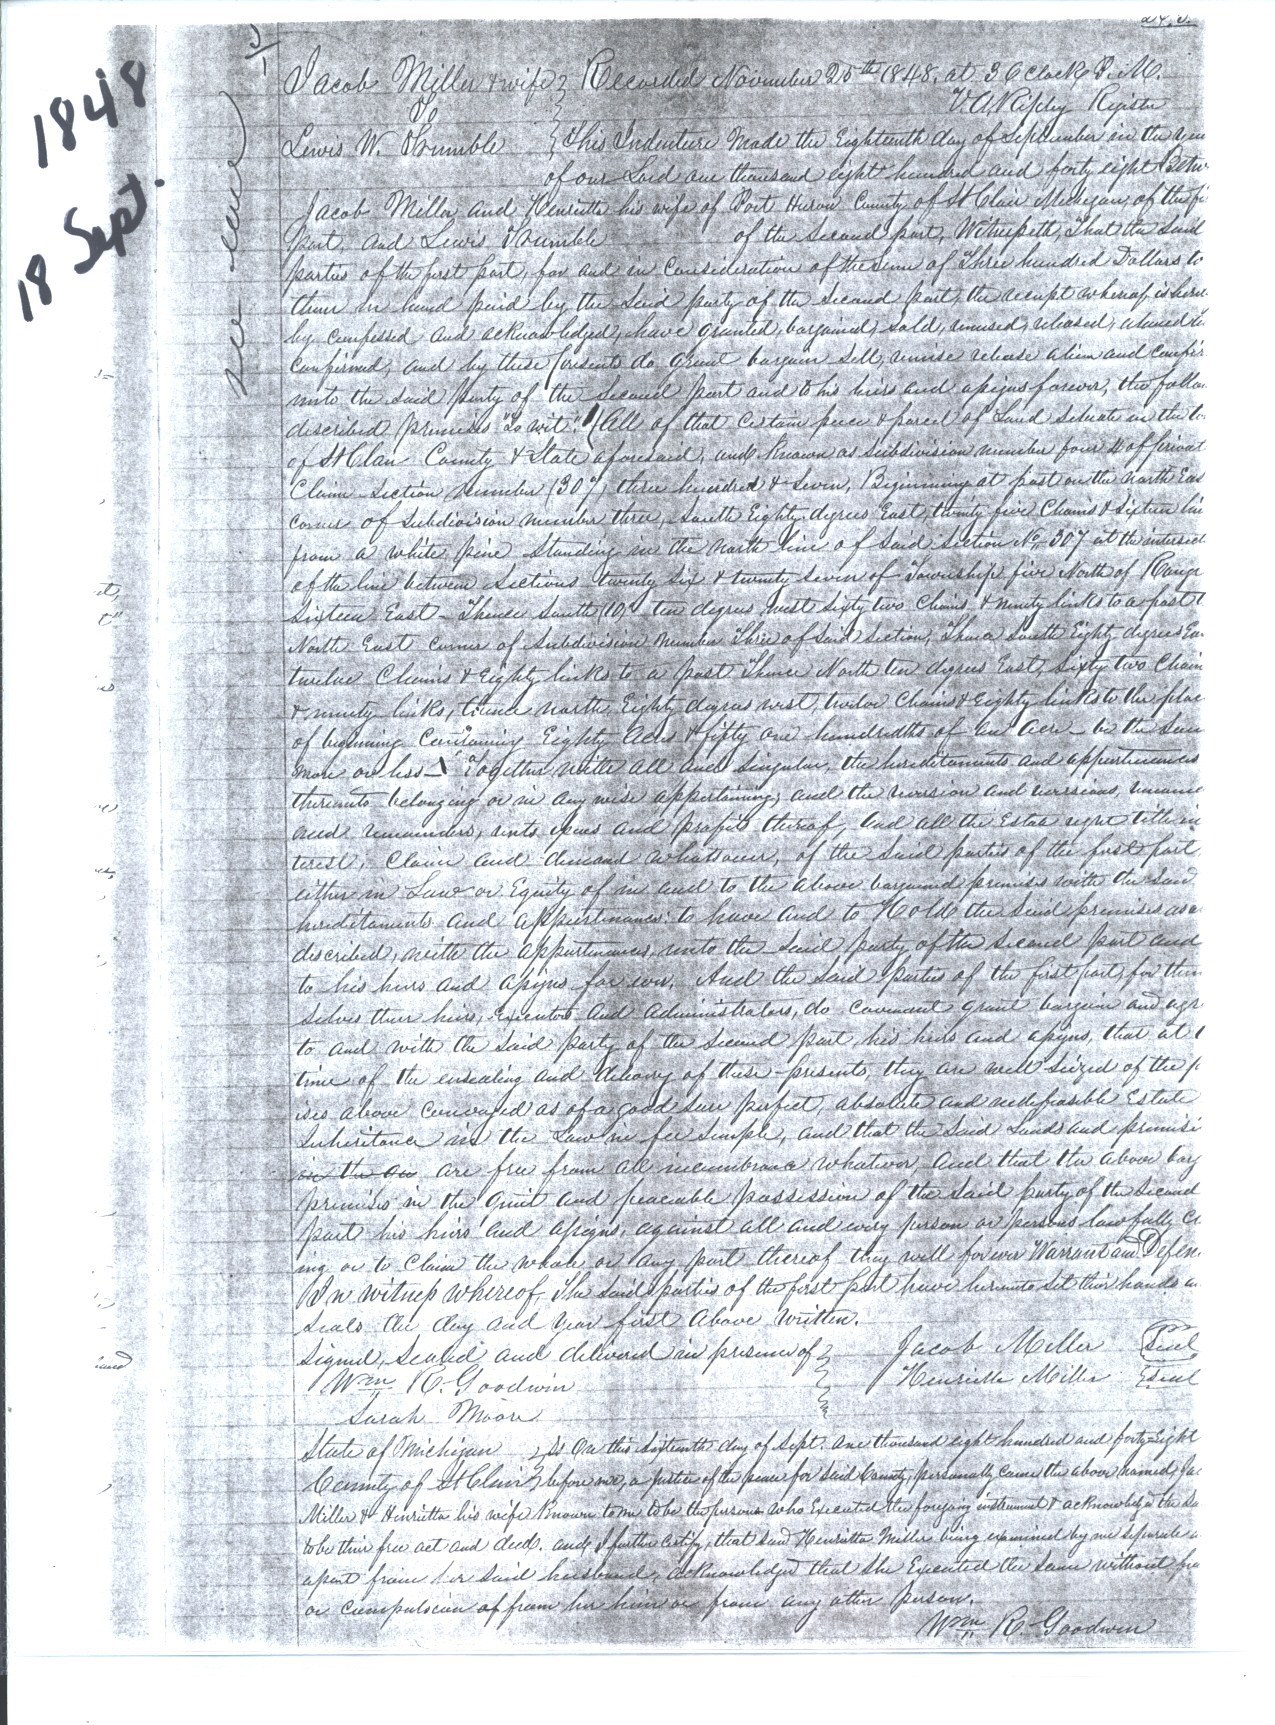 1848
18 Sept.
Jacob Miller & wife } Recorded November 25th 1848. at 3 O clock P. M.
To V. A. Ripley Register
Lewis W. Trumble } This Indenture Made the Eighteenth day of September in the
of our Lord one thousand eight hundred and forty eight Betw
Jacob Miller and Henrietta his wife of Port Huron County of St Clair Michigan, of the fi
part and Lewis Trumble of the Second part, Witnesseth, That the Said
parties of the first part, for and in Consideration of the Sum of Three hundred Dollars to
them in hand paid by the Said party of the Second part, the receipt whereof is here
by confessed and acknowledged, have granted, bargained, sold, remised, released, aliened
confirmed, and by these presents do grant bargain sell, remise release alien and confir
unto the said Party of the Second part and to his heirs and assigns forever, the follow
described premises "To wit". All of that Certain piece & parcel of Land situate in the
of St Clair County & State aforesaid, and Known as Subdivision number four 4 of private
Claim Section Number (307) three hundred & Seven, Beginning at post on the north East
corner of Subdivision number three, South Eighty degrees East, twenty five Chains & Sixteen lin
from a white pine Standing in the north line of Said Section No. 307 at the intersect
of the line between Sections twenty Six & twenty Seven of Township five North of Range
Sixteen East – Thence South (10) ten degrees west Sixty two Chains & ninety links to a post
North East corner of Subdivision number Three of Said Section, Thence South Eighty degrees Ea
twelve Chains & Eighty links to a post Thence North ten degrees East, Sixty two Chain
& ninety links, thence north Eighty degrees west, twelve Chains & Eighty links to the plac
of beginning Containing Eighty Acres & fifty one hundredths of an Acre – be the Same
more or less – Together with all and Singular, the hereditaments and appurtenances
thereunto belonging or in any wise appertaining, and the reversion and reversions, remain
and remainders, rents issues and profits thereof, and all the Estate right title in
terest, Claim and demand whatsoever, of the Said parties of the first part,
either in Law or Equity of in and to the above bargained premises with the Said
hereditaments and appurtenances: to have and to Hold the Said premises as
described, with the appurtenances, unto the Said party of the Second part and
to his heirs and assigns forever. And the Said parties of the first part, for them
selves their heirs, Executors and Administrators, do covenant grant bargain and agr
to and with the Said party of the Second part his heirs and assigns, that at
time of the ensealing and delivery of these presents, they are well Seized of the p
ises above conveyed as of a good sure perfect, absolute and indefeasible Estate
Inheritance in the Law in fee Simple, and that the Said Lands and premise
are free from all incumbrance whatever, and that the above barg
premises in the quiet and peaceable possession of the Said party of the Second
part his heirs and assigns, against all and every person or persons lawfully
ing or to Claim the whole or any part thereof they will forever Warrant and Defen
In witness whereof The Said parties of the first part have hereunto Set their hands
Seals the day and year first above written.
Signed, Sealed and delivered in presence of } Jacob Miller Seal
Wm R. Goodwin Henrietta Miller Seal
Sarah Moore
State of Michigan } ss On this Sixteenth day of Sept. one thousand eight hundred and forty eight
County of St Clair } before me, a justice of the peace for Said County, personally came the above named, Jac
Miller & Henrietta his wife Known to me to be the persons who Executed the foregoing instrument & acknowledged the Sa
to be their free act and deed. and I further Certify, that Said Henrietta Miller being examined by me separate
apart from her Said husband, acknowledged that She Executed the Same without fea
or compulsion of from her him or from any other person.
Wm R. Goodwin